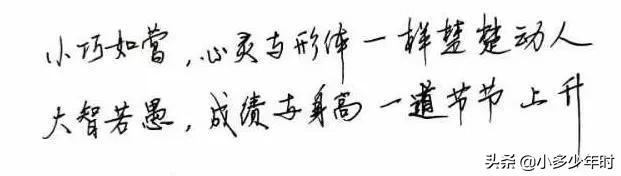 小巧如莺，心灵与形体一样楚楚动人
大智若愚，成绩与身高一道节节上升
头条 @小多少年时